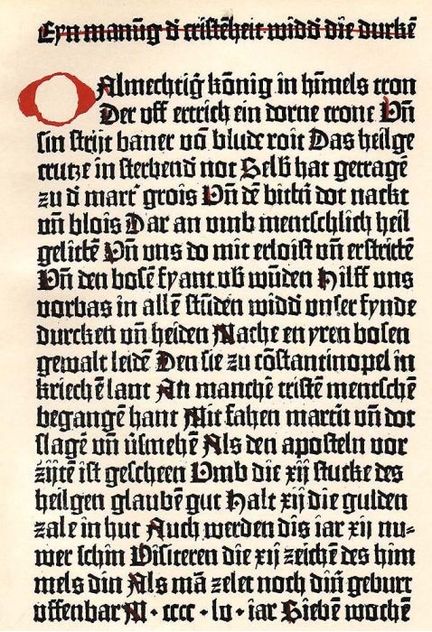 Eyn manũg d̃ cristẽheit widd̃ die durkẽ
O Almechtig kõnig in hĩmels tron
Der uff ertrich ein dorne crone Vñ
sin strijt baner võ blude roit Das heilge
crutze in sterbend not Selb hat getragẽ
zu d̃ mart' grois Vñ dẽ bittñ dot nackt
vñ blois Dar an vmb mentschlich heil
gelittẽ Vñ vns do mit erloist vñ erstrittẽ
Vñ den bosẽ fyant vb wũden Hilff vns
vorbas in allẽ stũden widd̃ vnser fynde
durcken vñ heiden Mache en yren bosen
gewalt leidẽ Den sie zu cõstantinopel in
kriechẽ lant An manchẽ cristẽ mentschẽ
begangẽ hant Mit fahen martñ vñ dot
slagẽ vñ v̓smehẽ Als den aposteln vor
zijtẽ ist gescheen Vmb die xij stucke des
heilgen glaubẽ gut Halt xij die gulden
zale in hut Auch werden dis iar xij nu-
wer schin Visiteren die xij zeichẽ des him
mels din Als mã zelet noch diñ geburt
uffenbar M · cccc · lv · iar Siebẽ wochẽ